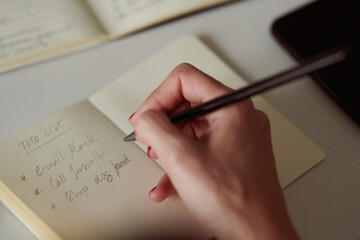 TODO LIST
* Email Mark
* Call families
* Shop dog food